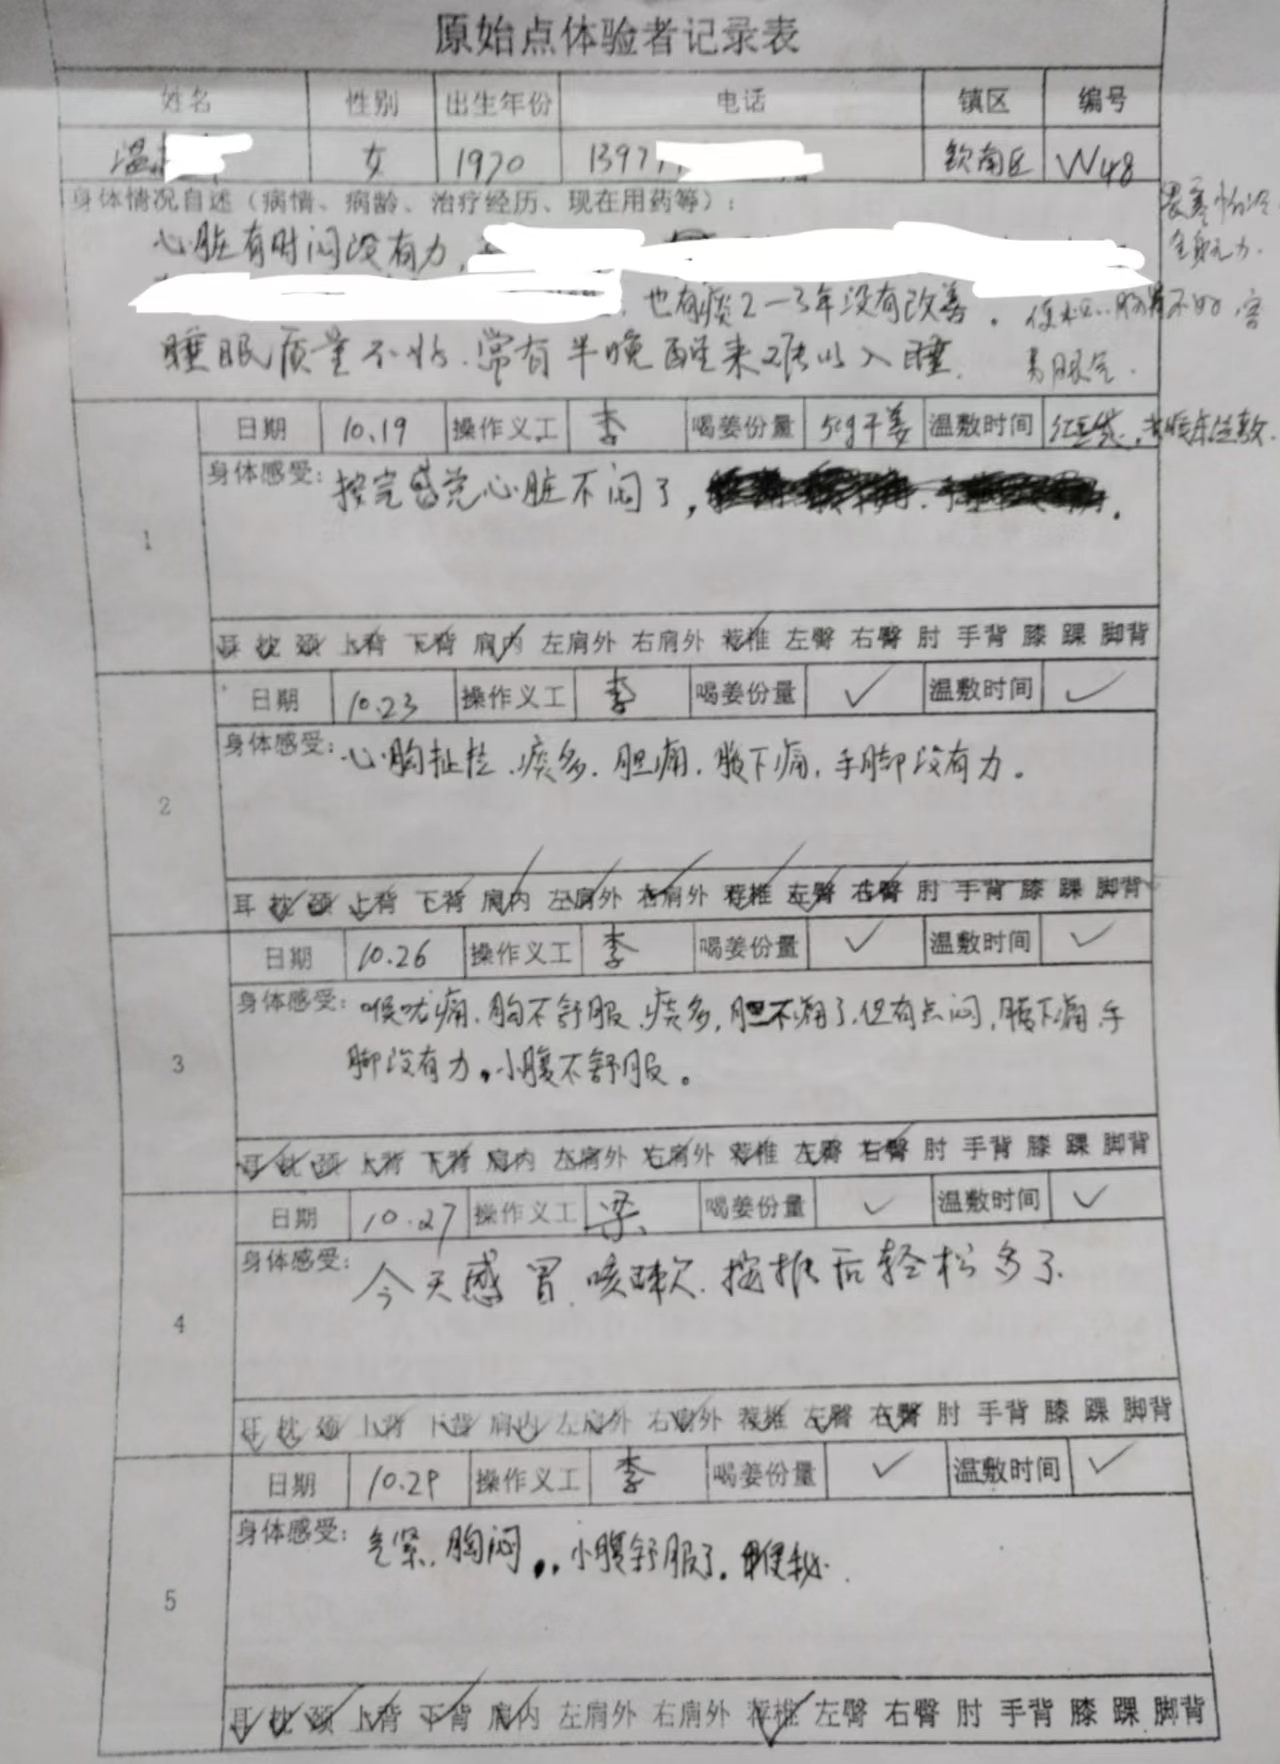 原始点体验者记录表
姓名 性别 出生年份 电话 镇区 编号
温 女 1970 1397 钦南区 W48
身体情况自述（病情、病龄、治疗经历、现在用药等）：
畏寒怕冷
全身无力.
心脏有时闷没有力，
也有痰2-3年没有改善。
便秘. 肠胃不好 容
易胀气.
睡眠质量不好.常有半晚醒来难以入睡.
1
日期 10.19 操作义工 李 喝姜份量 50g干姜 温敷时间 红豆袋
身体感受：按完感觉心脏不闷了，
耳 枕 颈 上背 下背 肩内 左肩外 右肩外 荐椎 左臀 右臀 肘 手背 膝 踝 脚背
2
日期 10.23 操作义工 李 喝姜份量 ✓ 温敷时间 ✓
身体感受：心胸扯拦.痰多.胆痛.腋下痛.手脚没有力。
耳 枕 颈 上背 下背 肩内 左肩外 右肩外 荐椎 左臀 右臀 肘 手背 膝 踝 脚背
3
日期 10.26 操作义工 李 喝姜份量 ✓ 温敷时间 ✓
身体感受：喉咙痛.胸不舒服.痰多,胆不痛了.但有点闷,腋下痛.手
脚没有力。小腹不舒服。
耳 枕 颈 上背 下背 肩内 左肩外 右肩外 荐椎 左臀 右臀 肘 手背 膝 踝 脚背
4
日期 10.27 操作义工 梁 喝姜份量 ✓ 温敷时间 ✓
身体感受：今天感冒.咳嗽.按推后轻松多了.
耳 枕 颈 上背 下背 肩内 左肩外 右肩外 荐椎 左臀 右臀 肘 手背 膝 踝 脚背
5
日期 10.29 操作义工 李 喝姜份量 ✓ 温敷时间 ✓
身体感受：气紧.胸闷..小腹舒服了.便秘.
耳 枕 颈 上背 下背 肩内 左肩外 右肩外 荐椎 左臀 右臀 肘 手背 膝 踝 脚背